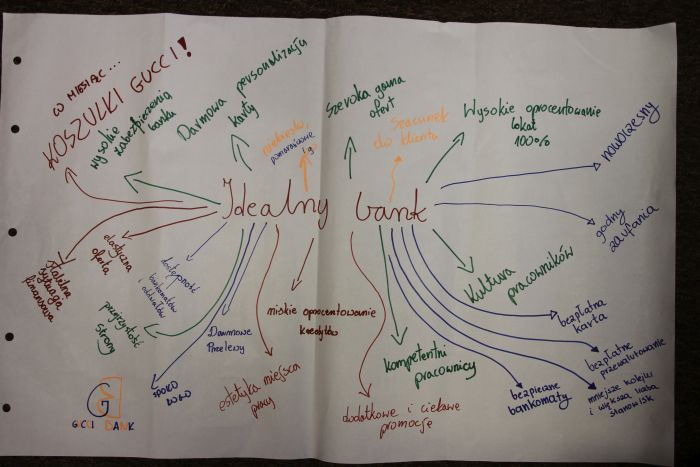 W MIESIĄC...
KOSZULKI GUCCI!
wysokie
zabezpieczenia
banku
Darmowa personalizacja
karty
niebiesko,
pomarańczowe
Szeroka gama
ofert
Szacunek
do klienta
Wysokie oprocentowanie
lokat
100%
nowoczesny
godny
zaufania
Idealny bank
Stabilna
sytuacja
finansowa
elastyczna
oferta
dostępność
bankomatów
i oddziałów
przejrzystość
strony
Darmowe
Przelewy
SPOKO
LOGO
GUCCI BANK
estetyka miejsca
pracy
niskie oprocentowanie
kredytów
dodatkowe i ciekawe
promocje
kompetentni
pracownicy
Kultura
pracowników
bezpieczne
bankomaty
bezpłatna
karta
bezpłatne
przewalutowanie
mniejsze kolejki
i większa liczba
stanowisk